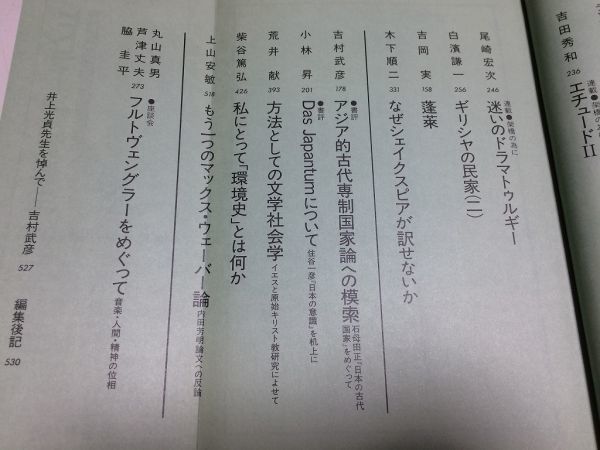 吉田秀和 236 エチュードII
尾崎宏次 246 連載●架橋の為に 迷いのドラマトゥルギー
白濱謙一 256 連載●架橋の為に ギリシャの民家(二)
吉岡実 158 蓬萊
木下順二 331 なぜシェイクスピアが訳せないか
吉村武彦 178 ●書評 アジア的古代専制国家論への模索 石母田正『日本の古代国家』をめぐって
小林昇 201 ●書評 Das Japantumについて 住谷一彦『日本の意識』を机上に
荒井献 393 方法としての文学社会学 イエスと原始キリスト教研究によせて
柴谷篤弘 426 私にとって「環境史」とは何か
上山安敏 518 もう一つのマックス・ウェーバー論 内田芳明論文への反論
丸山真男
芦津丈夫
脇圭平
273 ●座談会 フルトヴェングラーをめぐって 音楽・人間・精神の位相
井上光貞先生を悼んで――吉村武彦 527
編集後記 530